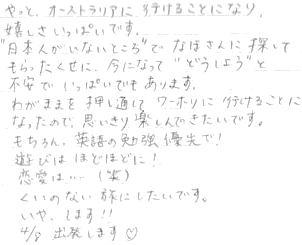 やっと、オーストラリアに行けることになり、
嬉しさいっぱいです。
"日本人がいないところ"でなほさんに探して
もらったくせに、今になって"どうしよう"と
不安でいっぱいでもあります。
わがままを押し通してワーホリに行けることに
なったので、思いきり楽しんできたいです。
もちろん、英語の勉強優先で!
遊びはほどほどに!
恋愛は…(笑)
くいのない旅にしたいです。
いや、します!!
4/8 出発します♡